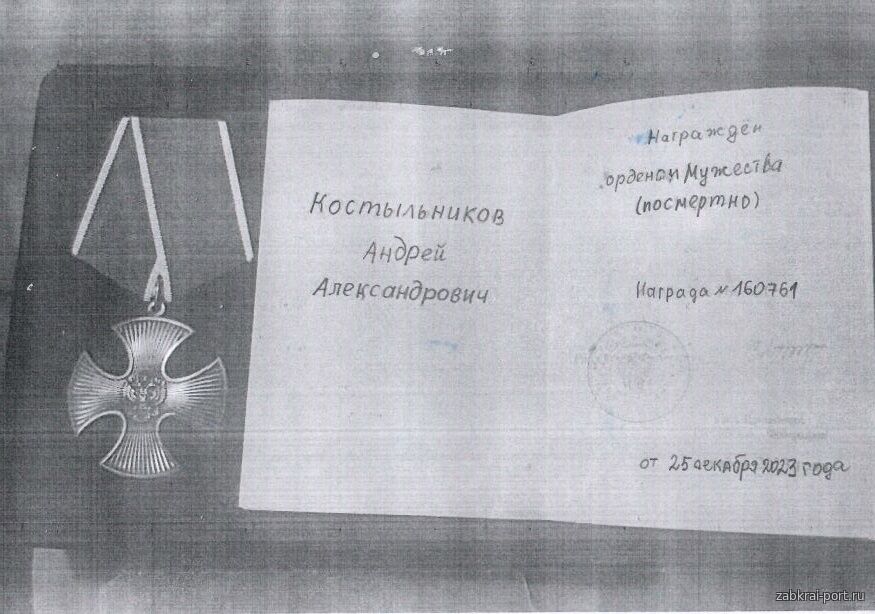 Костыльников
Андрей
Александрович
Награждён
орденом Мужества
(посмертно)
Награда № 160761
от 25 декабря 2023 года
zabkrai-port.ru